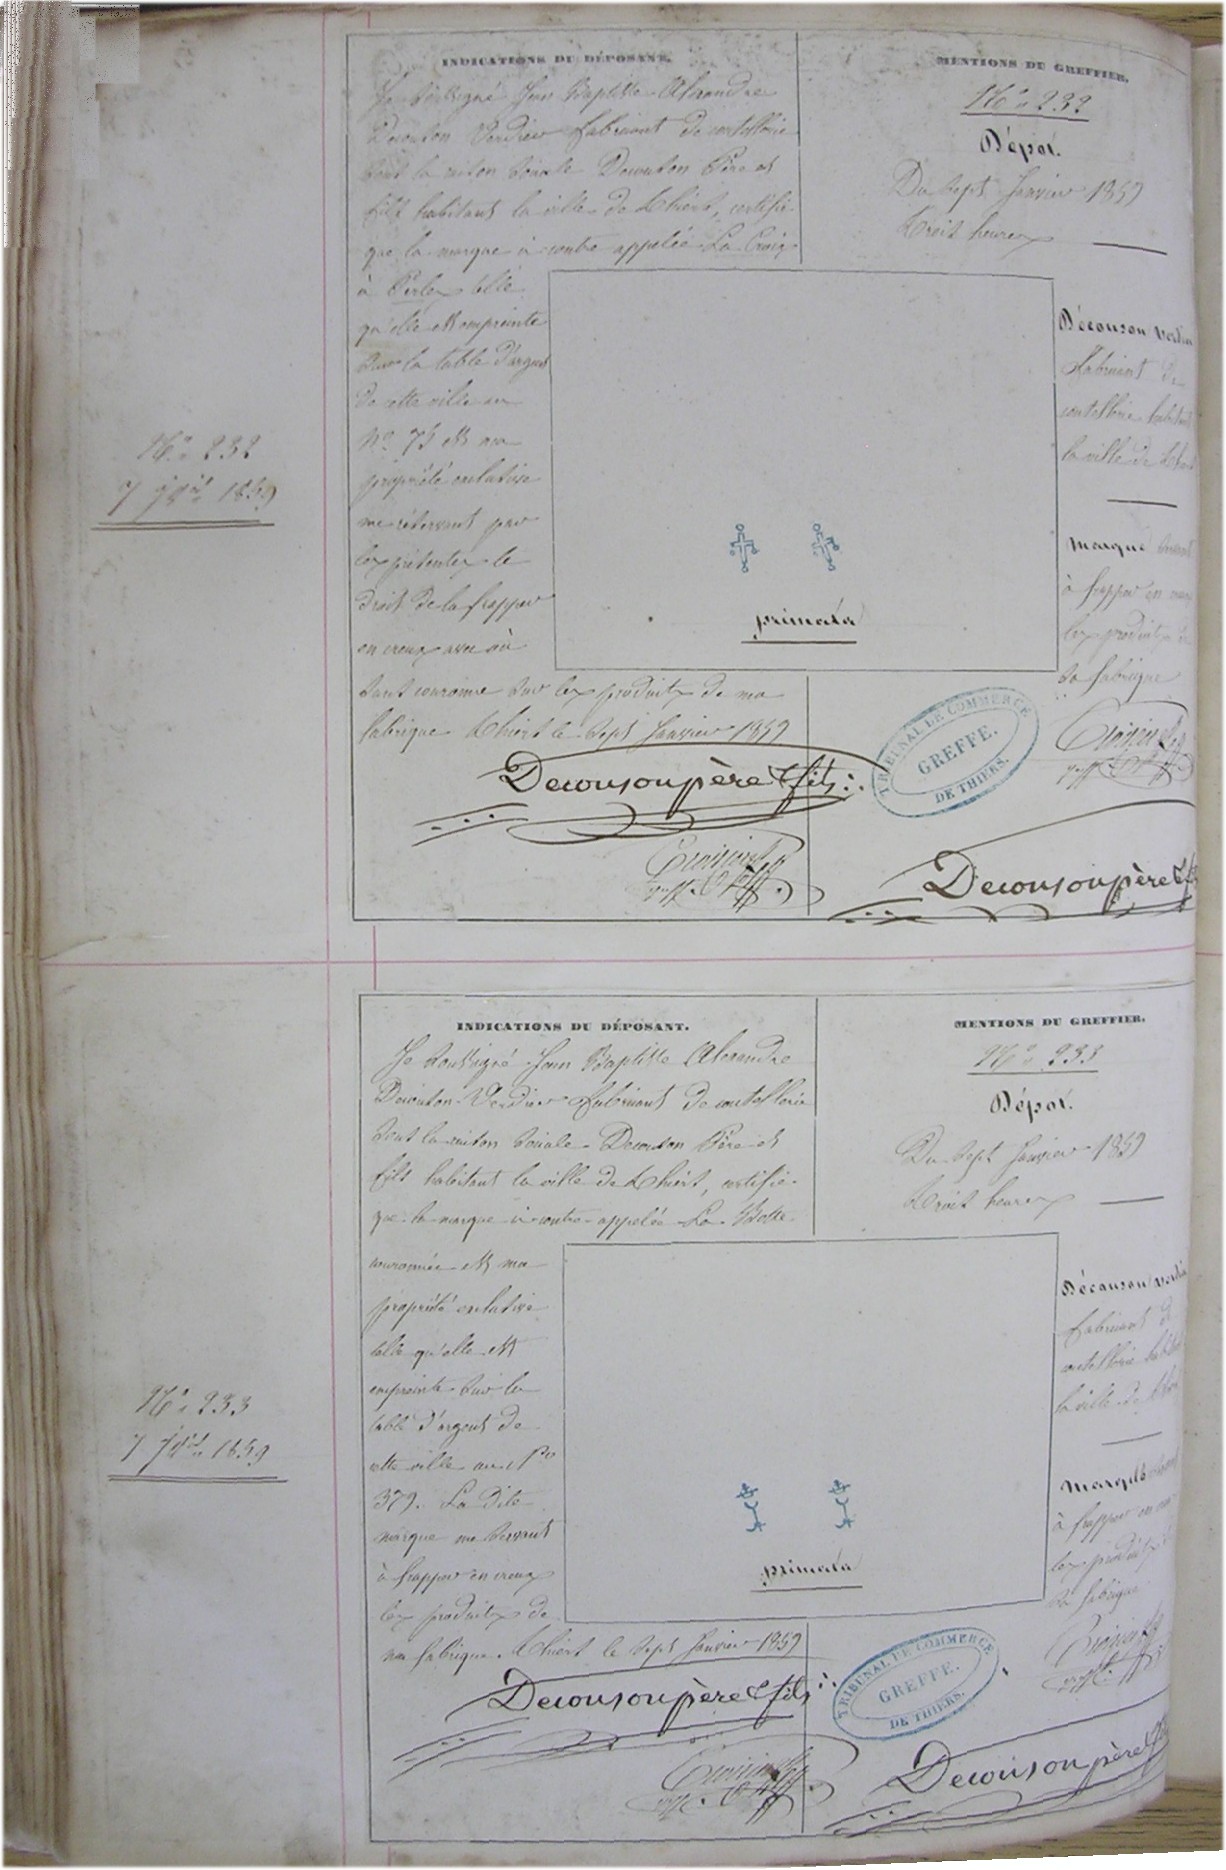 INDICATIONS DU DÉPOSANT.
Je soussigné Jean Baptiste Alexandre
Decouson Verdier fabricant de coutellerie
sous la raison sociale Decouson Père et
fils habitant la ville de Thiers, certifie
que la marque ci contre appelée La Croix
à Perles telle
qu'elle est empreinte
sur la table d'argent
de cette ville au
No 75 est ma
propriété exclusive
me réservant par
les présentes le
droit de la frapper
en creux avec ou
sans couronne sur les produits de ma
fabrique Thiers le sept Janvier 1859
Decouson père & fils
MENTIONS DU GREFFIER.
No 232
Dépôt.
Du sept Janvier 1859
trois heures
Découson Verdier
fabricant de
coutellerie habitant
la ville de Thiers
marque
à frapper en creux
les produits de
sa fabrique
primata
TRIBUNAL DE COMMERCE
GREFFE.
DE THIERS.
Decouson père &
No 232
7 jer 1859
INDICATIONS DU DÉPOSANT.
Je soussigné Jean Baptiste Alexandre
Decouson Verdier fabricant de coutellerie
sous la raison sociale Decouson Père et
fils habitant la ville de Thiers, certifie
que la marque ci contre appelée La Botte
couronnée est ma
propriété exclusive
telle qu'elle est
empreinte sur la
table d'argent de
cette ville au No
379. La dite
marque me servant
à frapper en creux
les produits de
ma fabrique. Thiers le sept Janvier 1859
Decouson père & fils
MENTIONS DU GREFFIER.
No 233
Dépôt.
Du sept Janvier 1859
trois heures
Découson Verdier
fabricant de
coutellerie habitant
la ville de Thiers
marque
à frapper en creux
les produits de
sa fabrique
primata
TRIBUNAL DE COMMERCE
GREFFE.
DE THIERS.
Decouson père &
No 233
7 jer 1859